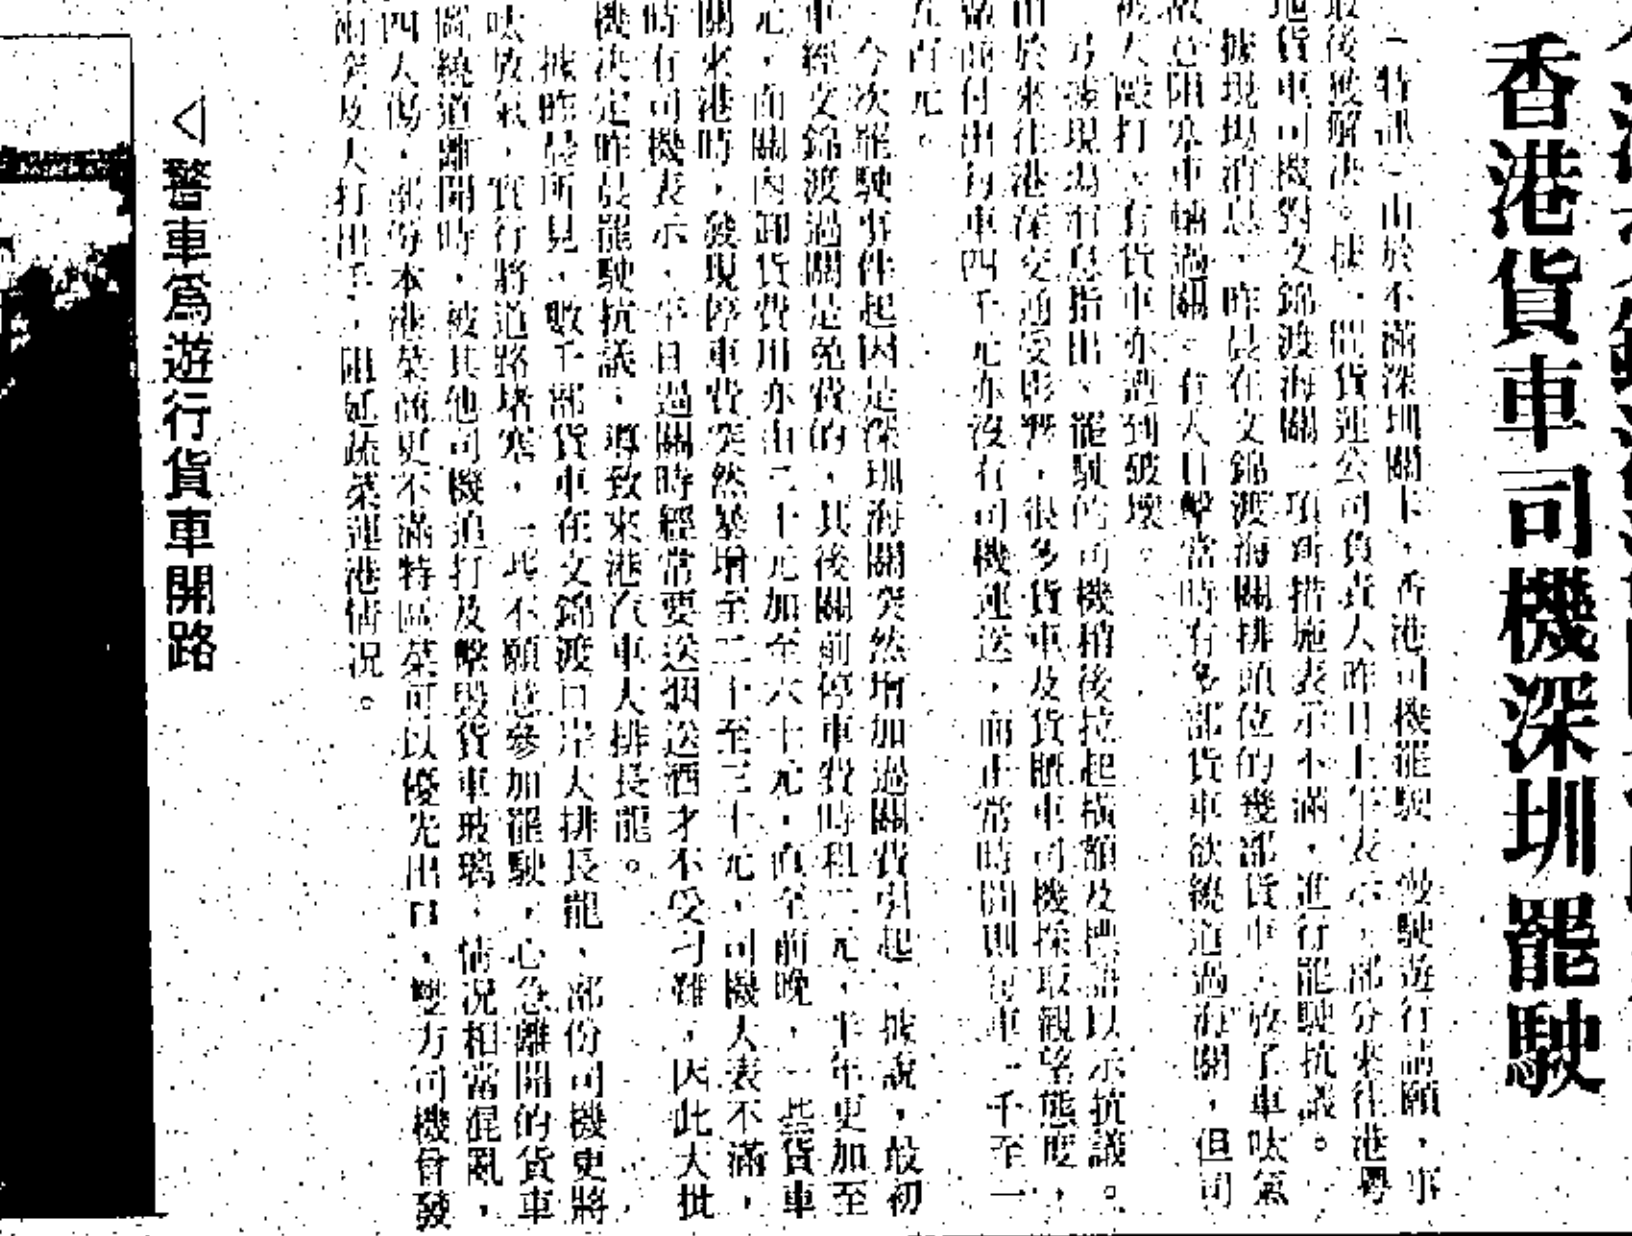 香港貨車司機深圳罷駛
（特訊）由於不滿深圳關卡，香港司機罷駛，慢駛遊行請願，事
最後獲解決。據一間貨運公司負責人昨日上午表示，部分來往港粵
地貨車司機對文錦渡海關一項新措施表示不滿，進行罷駛抗議。
據現場消息，昨晨在文錦渡海關排頭位的幾部貨車，放了車呔氣
故意阻塞車輛過關。有人目擊當時有多部貨車欲繞道過海關，但司
被人毆打，有貨車亦遭到破壞。
尋據現場消息指出，罷駛的司機稍後拉起橫額及標語以示抗議。
由於來往港深交通受影響，很多貨車及貨櫃車司機採取觀望態度，
商付出每車四千元亦沒有司機運送，而正常時間則每車一千至一
五百元。
今次罷駛事件起因是深圳海關突然增加過關費引起，據說，最初
車經文錦渡過關是免費的，其後關前停車費時租二元，半年更加至
元，而關內卸貨費用亦由二十元加至六十元，直至前晚，一些貨車
關來港時，發現停車費突然暴增至二十至三十元，司機大表不滿，
時有司機表示，平日過關時經常要送烟送酒才不受刁難，因此大批
機決定昨晨罷駛抗議，導致來港汽車大排長龍。
據昨晨所見，數千部貨車在文錦渡口岸大排長龍，部份司機更將
呔放氣，實行將道路堵塞，一些不願意參加罷駛，心急離開的貨車
圖繞道離開時，被其他司機追打及擊毀貨車玻璃，情況相當混亂，
四人傷，部份本港菜商更不滿特區菜可以優先出口，雙方司機曾發
打出手，阻延蔬菜運港情況。
◁警車爲遊行貨車開路